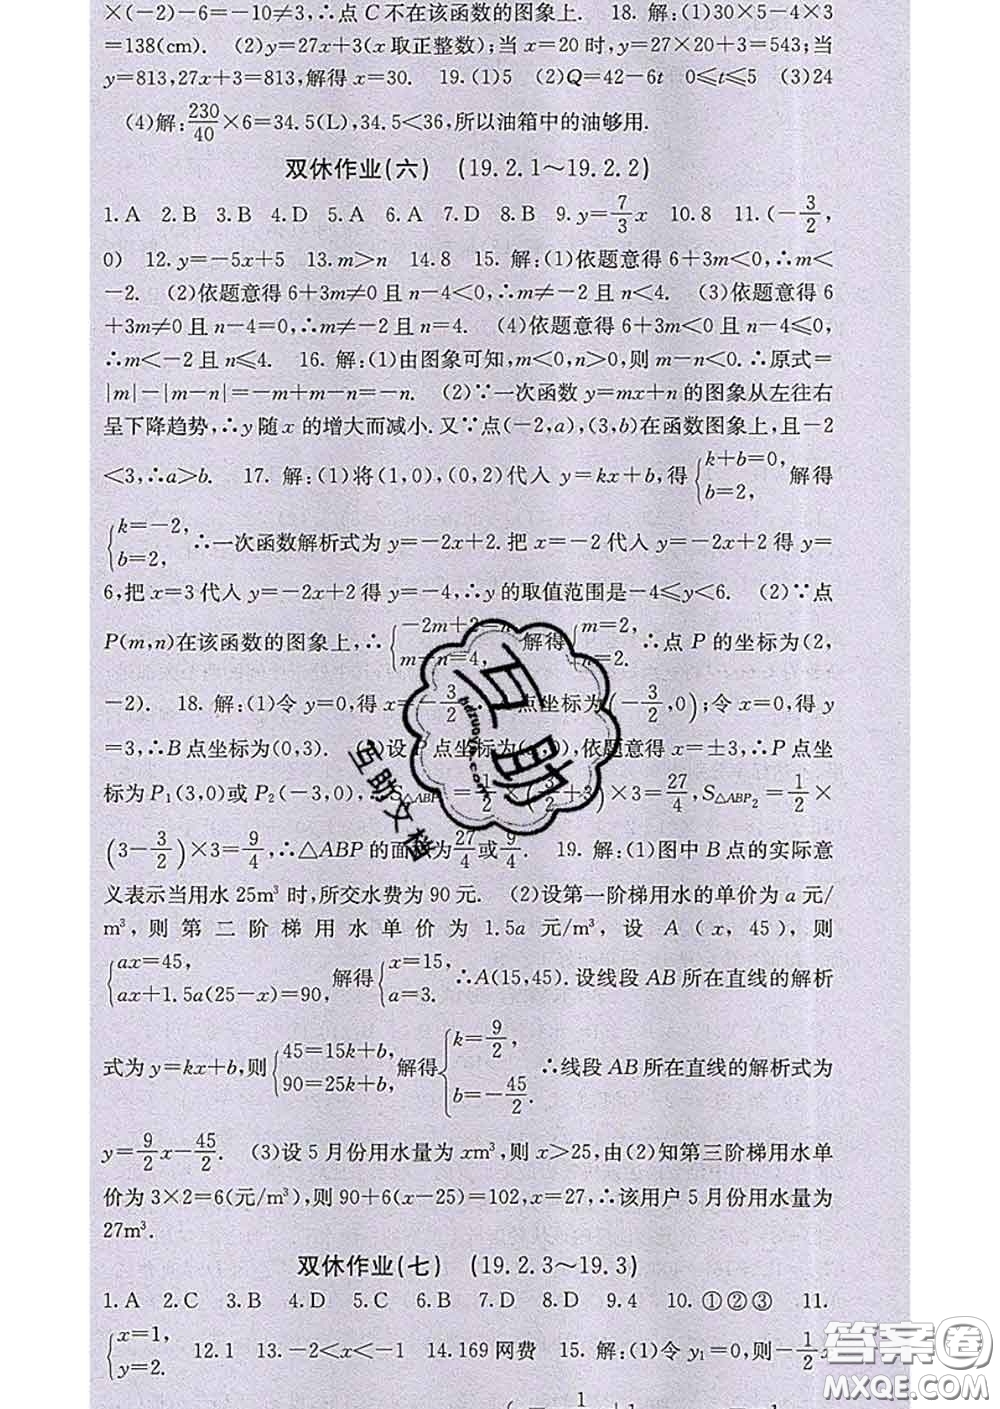 ×(-2)-6=-10≠3,∴点 C 不在该函数的图象上. 18. 解:(1)30×5-4×3
=138(cm). (2)y=27x+3(x 取正整数);当 x=20 时,y=27×20+3=543;当
y=813,27x+3=813,解得 x=30. 19.(1)5 (2)Q=42-6t 0≤t≤5 (3)24
(4)解:230/40×6=34.5(L),34.5<36,所以油箱中的油够用.
双休作业(六) (19.2.1~19.2.2)
1.A 2.B 3.B 4.D 5.A 6.A 7.D 8.B 9.y=7/3x 10.8 11.(-3/2,
0) 12.y=-5x+5 13.m>n 14.8 15. 解:(1)依题意得 6+3m<0,∴m<
-2. (2)依题意得 6+3m≠0 且 n-4<0,∴m≠-2 且 n<4. (3)依题意得 6
+3m≠0 且 n-4=0,∴m≠-2 且 n=4. (4)依题意得 6+3m<0 且 n-4≤0,
∴m<-2 且 n≤4. 16. 解:(1)由图象可知,m<0,n>0,则 m-n<0.∴原式=
|m|-|m-n|=-m+m-n=-n. (2)∵一次函数 y=mx+n 的图象从左往右
呈下降趋势,∴y 随 x 的增大而减小.又∵点(-2,a),(3,b)在函数图象上,且-2
<3,∴a>b. 17. 解:(1)将(1,0),(0,2)代入 y=kx+b,得{k+b=0, b=2, 解得
{k=-2, b=2, ∴一次函数解析式为 y=-2x+2.把 x=-2 代入 y=-2x+2 得 y=
6,把 x=3 代入 y=-2x+2 得 y=-4,∴y 的取值范围是-4≤y<6. (2)∵点
P(m,n)在该函数的图象上,∴{-2m+2=n, m-n=4, 解得{m=2, n=-2. ∴点 P 的坐标为(2,
-2). 18. 解:(1)令 y=0,得 x=-3/2 点坐标为(-3/2,0);令 x=0,得 y
=3,∴B 点坐标为(0,3). 设 P 点坐标为 ,0),依题意得 x=±3,∴P 点坐
标为 P1(3,0)或 P2(-3,0), S△ABP =1/2×(3/2+3)×3=27/4,S△ABP2=1/2×
(3-3/2)×3=9/4,∴△ABP 的面 为27/4或9/4. 19. 解:(1)图中 B 点的实际意
义表示当用水 25m³ 时,所交水费为 90 元. (2)设第一阶梯用水的单价为 a 元/
m³,则第二阶梯用水单价为 1.5a 元/m³,设 A(x,45),则
{ax=45, ax+1.5a(25-x)=90, 解得{x=15, a=3. ∴A(15,45).设线段 AB 所在直线的解析
式为 y=kx+b,则{45=15k+b, 90=25k+b, 解得{k=9/2, b=-45/2. ∴线段 AB 所在直线的解析式为
y=9/2x-45/2. (3)设 5 月份用水量为 xm³,则 x>25,由(2)知第三阶梯用水单
价为 3×2=6(元/m³),则 90+6(x-25)=102,x=27,∴该用户 5 月份用水量为
27m³.
双休作业(七) (19.2.3~19.3)
1.A 2.C 3.B 4.D 5.C 6.B 7.D 8.D 9.4 10.①②③ 11.
{x=1, y=2. 12.1 13.-2<x<-1 14.169 网费 15. 解:(1)令 y1=0,则-1/2x
互助
互助文档
答案圈
MXQE.COM